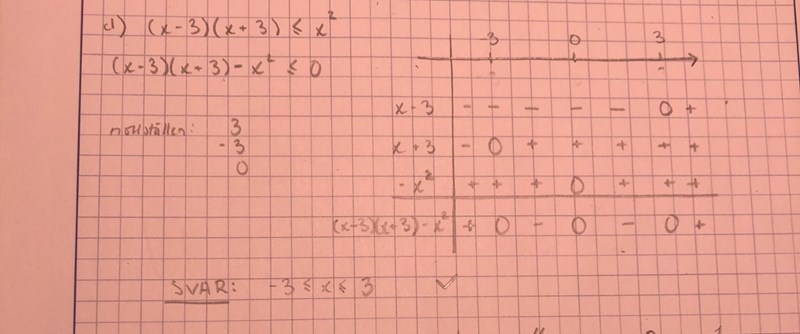 d) (x-3)(x+3) ≤ x²
(x-3)(x+3) - x² ≤ 0
nollställen: 3
-3
0
-3 0 3
x-3 - - - - - 0 +
x+3 - 0 + + + + +
-x² + + + 0 + + +
(x-3)(x+3)-x² + 0 - 0 - 0 +
SVAR: -3 ≤ x ≤ 3 ✓